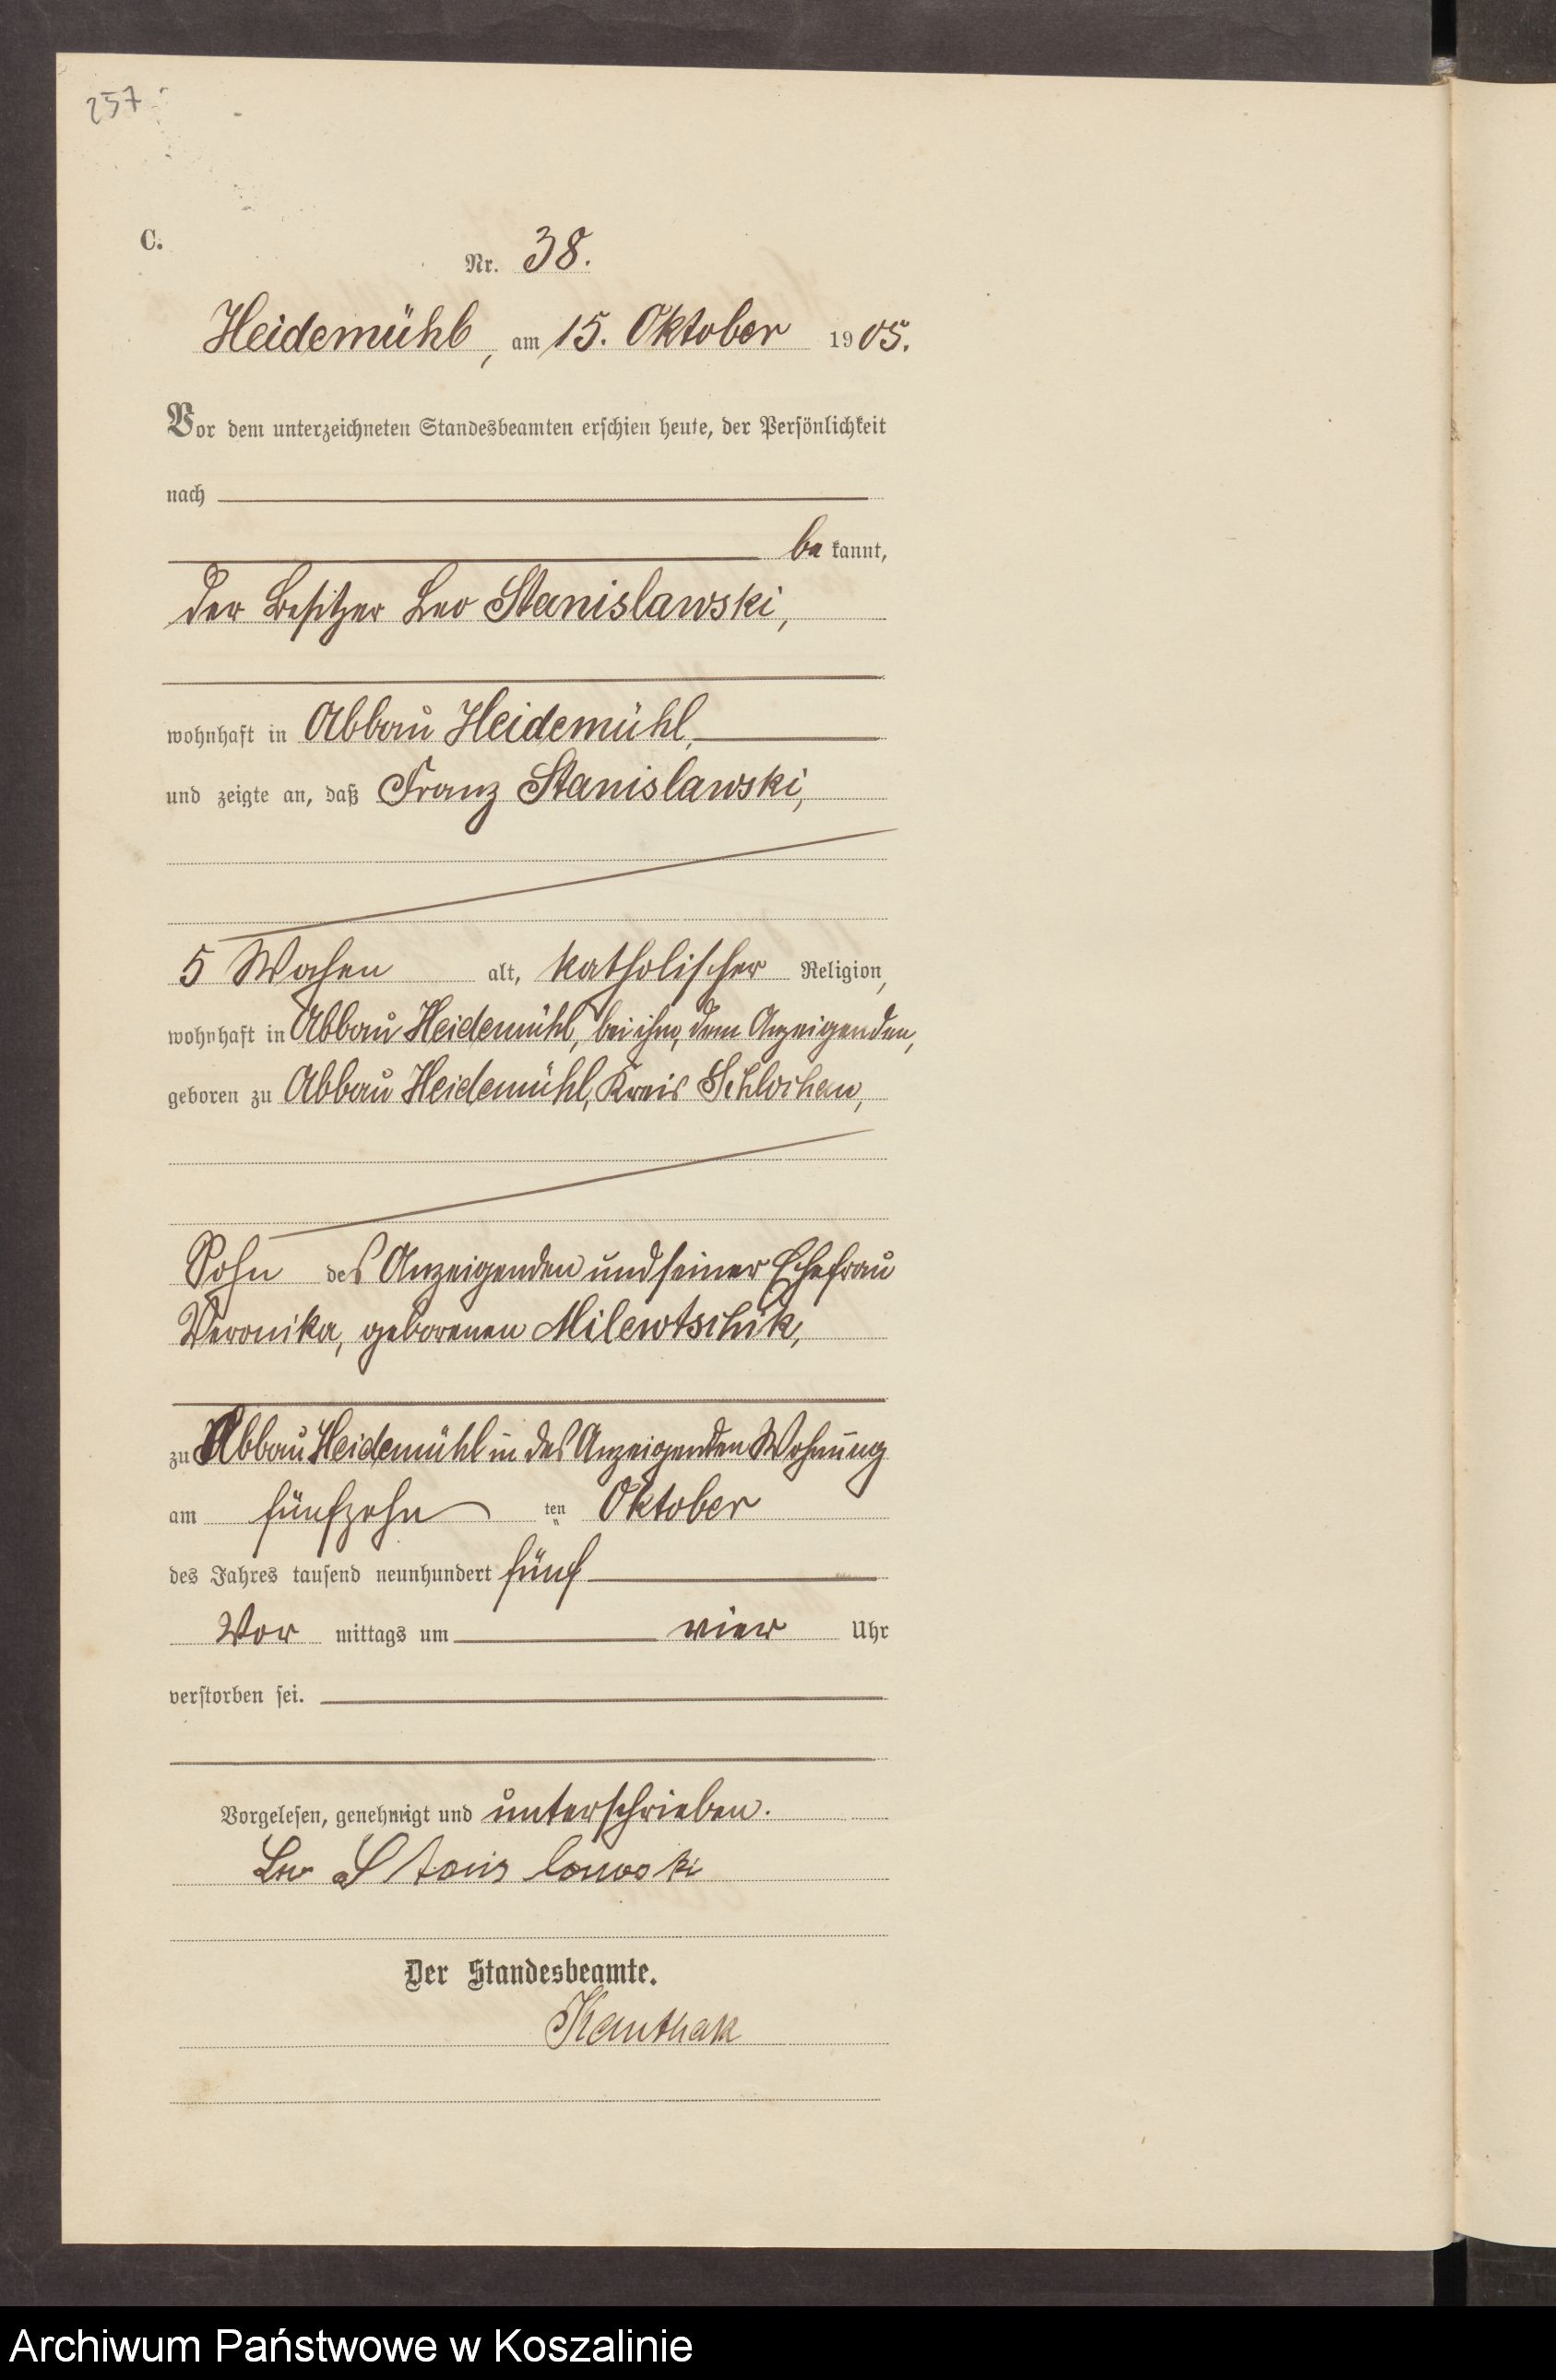 257
C.
Nr. 38.
Heidemühl, am 15. Oktober 1905.
Vor dem unterzeichneten Standesbeamten erschien heute, der Persönlichkeit
nach
bekannt,
der Besitzer Leo Stanislawski,
wohnhaft in Abbau Heidemühl,
und zeigte an, daß Franz Stanislawski,
5 Wochen alt, katholischer Religion,
wohnhaft in Abbau Heidemühl, bei ihm, dem Anzeigenden,
geboren zu Abbau Heidemühl, Kreis Schlochau,
Sohn des Anzeigenden und seiner Ehefrau
Veronika, geborenen Milewtschik,
zu Abbau Heidemühl in des Anzeigenden Wohnung
am fünfzehn ten Oktober
des Jahres tausend neunhundert fünf
Vor mittags um vier Uhr
verstorben sei.
Vorgelesen, genehmigt und unterschrieben.
Leo Stanislawski
Der Standesbeamte.
Kanthak
Archiwum Państwowe w Koszalinie